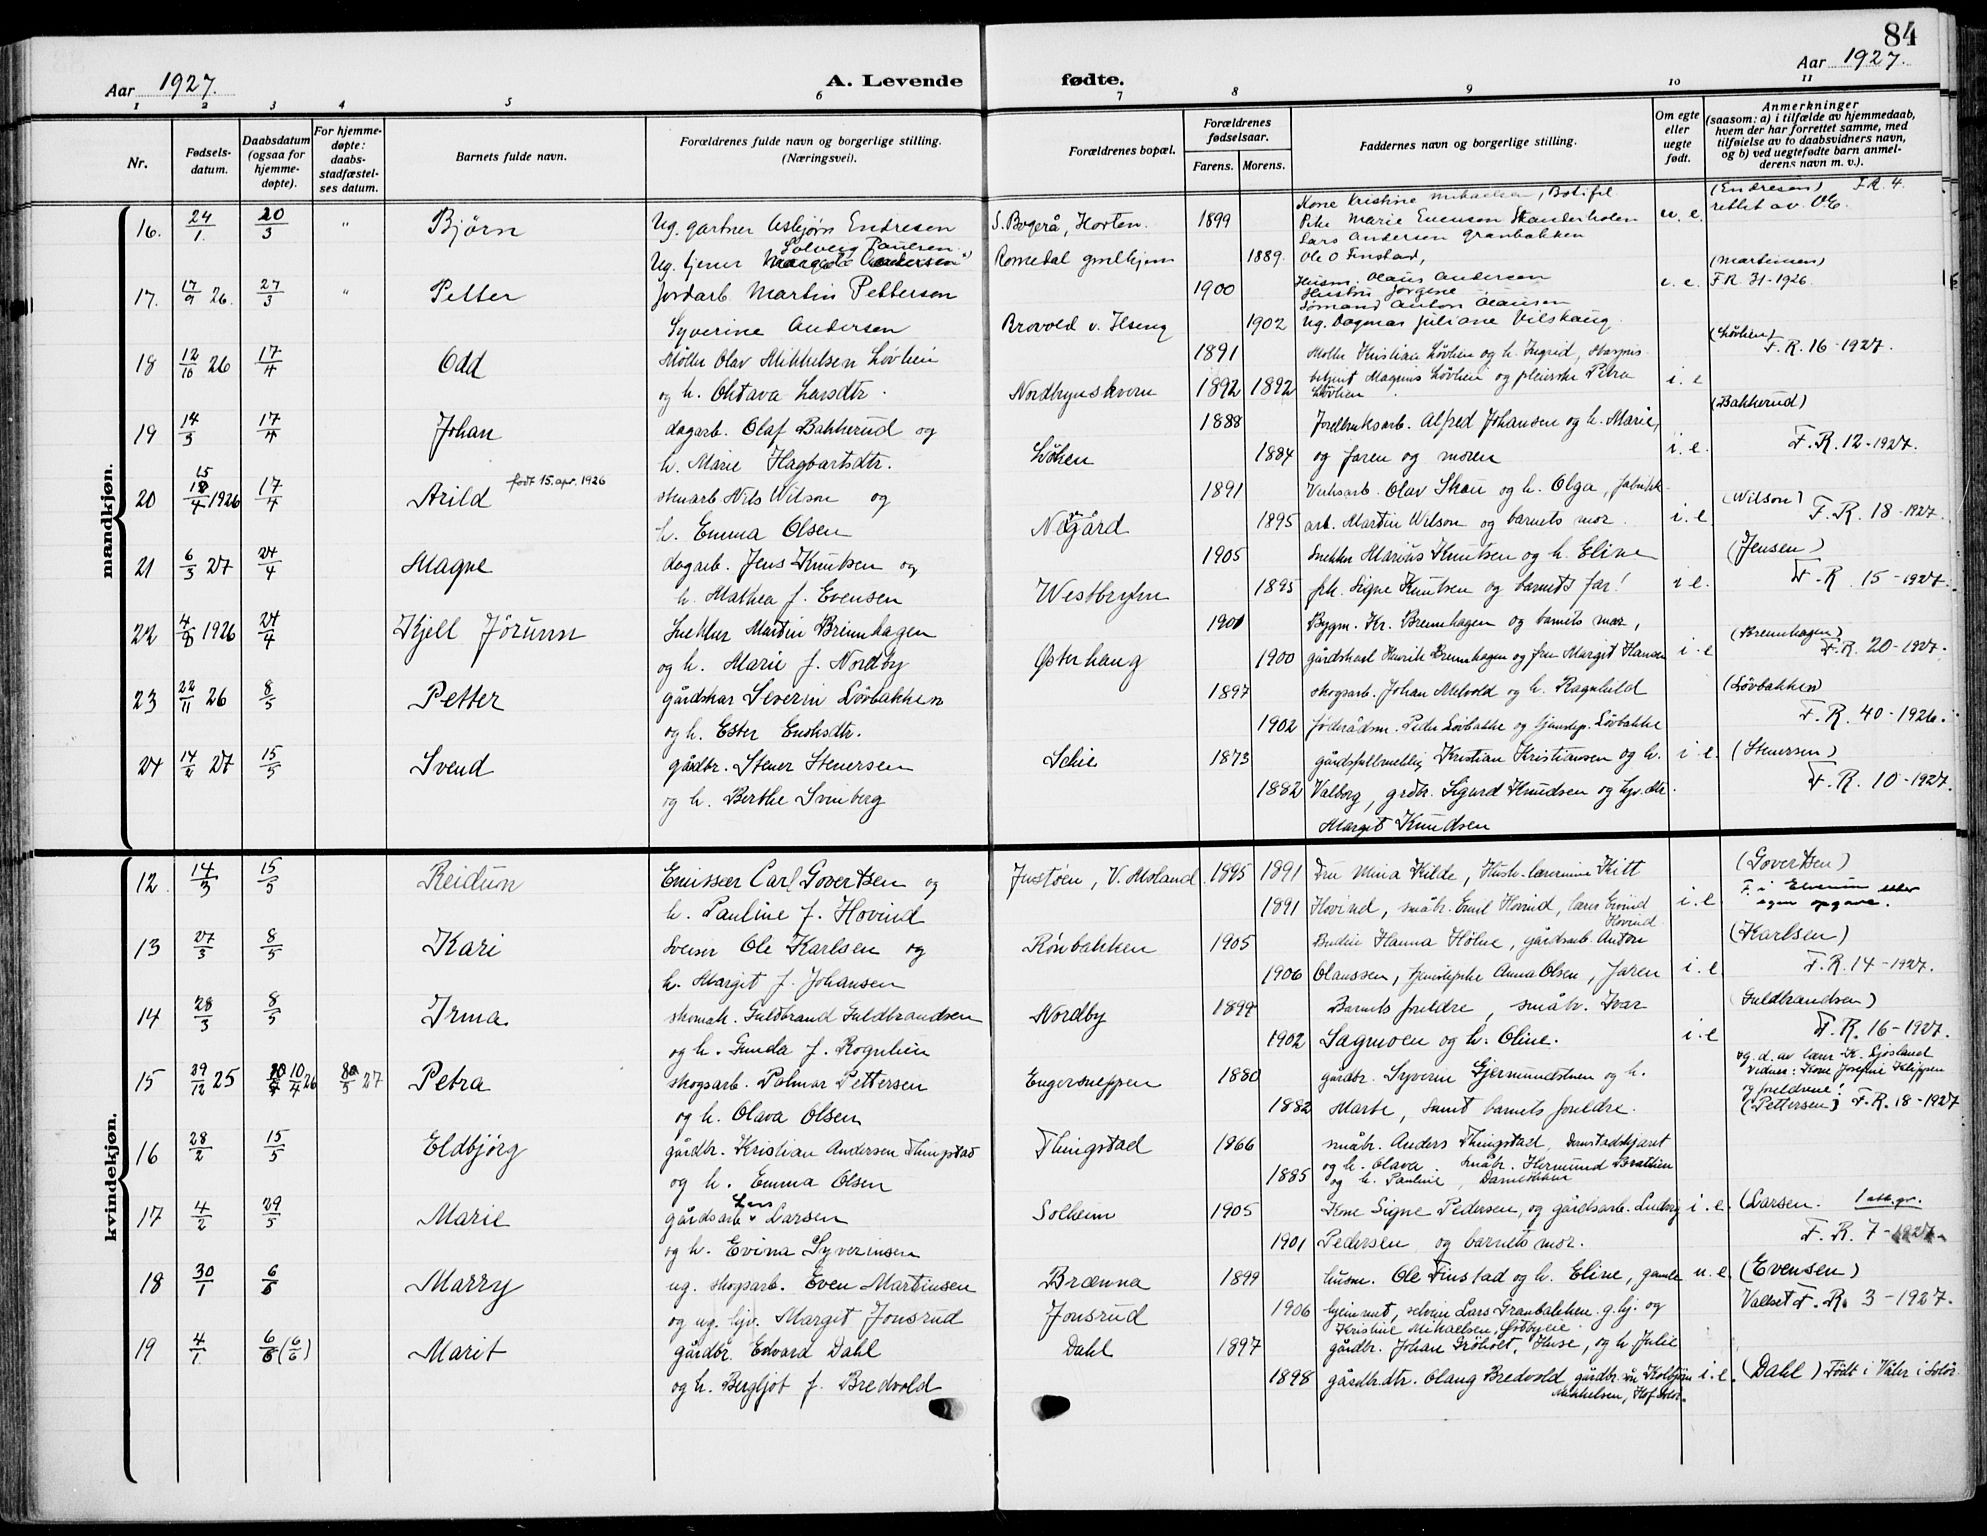 84
Aar 1927.
A. Levende
fødte.
Aar 1927.
1 2 3 4 5 6 7 8 9 10 11
Nr.
Fødsels-
datum.
Daabsdatum
(ogsaa for
hjemme-
døpte).
For hjemme-
døpte:
daabs-
stadfæstel-
ses datum.
Barnets fulde navn.
Forældrenes fulde navn og borgerlige stilling.
(Næringsvei).
Forældrenes bopæl.
Forældrenes
fødselsaar.
Farens. Morens.
Faddernes navn og borgerlige stilling.
Om egte
eller
uegte
født.
Anmerkninger
(saasom: a) i tilfælde av hjemmedaab,
hvem der har forrettet samme, med
tilføielse av to daabsvidners navn,
og b) ved uegtefødte barn anmel-
derens navn m. v.).
mandkjøn.
Kone Kristine Mikaelsen, (Endresen) F.R. 4.
16. 24/1. 20/3 " Bjørn Ug. gartner Asbjørn Endresen Horten. 1899 Pike Marie Evensen u. e. rettet av
Solveig Paulsen Lars Andersen Granbakken
Ug. tjener Romedal 1889. Ole O Finstad, (Martinsen)
17. 17/9 26. 27/3 " Petter Jordarb. Martin Pettersen 1900 Husm. Olaus Andersen F.R. 31-1926.
Hustru Jørgine
Syverine Andersen Brovold v. Ilseng 1902 Ug. Dagmar Juliane Vilskaug. (Løvlien)
18 12/10 26 17/4 Odd Møller Olav Mikkelsen Løvlien 1891 Møller Kristian Løvlien og h. Ingrid, F.R. 16-1927.
og h. Oktava Larsdtr. Nordbynskvern 1892 1892 betjent Magnus Løvlien og pleierske Petra i. e
Løvlien. (Bakkerud)
19 14/3 17/4 Johan dagarb. Olaf Bakkerud og 1888 Jordbruksarb. Alfred Johansen og h. Marie, F.R. 12-1927.
h. Marie Hagbartsdtr. 1884 og faren og moren i. e.
20 15/4 1926 17/4 Arild født 15. apr. 1926 stenarb Nils Wilson og 1891 Verksarb. Olav Skau og h. Olga, fabrikk- (Wilson)
h. Emma Olsen Nygård 1895 arb. Martin Wilson og barnets mor. i. e. F.R. 18-1927.
21 6/3 27 24/4 Magne dagarb. Jens Knutsen og 1905 Snekker Marius Knutsen og h. Eline (Jensen)
h. Mathea f. Evensen Westbyhn 1895 frk. Signe Knutsen og barnets far! i. e. F.R. 15-1927.
22 1926 24/4 Kjell Jørunn Snekker Martin Brennhagen 1901 Bygm. Kr. Brennhagen og barnets mor, (Brennhagen)
og h. Marie f. Nordby Østerhaug 1900 gårdskarl Henrik Brennhagen og fru Margit Hansen i. e F.R. 20-1927.
23 22/11 26 8/5 Petter gårdskar Severin Løvbakken 1897 skogsarb. Johan Melvold og h. Ragnhild (Løvbakken)
og h. Ester Enoksdtr. 1902 føderådsm. Peder Løvbakke og tjenstep. Løvbakke F.R. 40-1926.
24 14/2 27 15/5 Svend gårdbr. Stener Stenersen Schie 1873 gårdsfullmektig Kristian Kristiansen og h. i. e. (Stenersen)
og h. Berthe Svinberg 1882 Valborg, grdbr. Sigurd Knudsen og hjv. dtr. F.R. 10-1927.
Margit Knudsen
kvindekjøn.
12. 14/3 15/5 Reidun Emissær Carl Govertsen og Justøen, V. Moland. 1895 1891 Fru Mina Kilde, Hush.-lærerinne Kitt (Govertsen)
h. Pauline f. Hovind 1891 Hovind, småbr. Emil Hovind, lærer Eivind i. e. F. i Elverum etter
Hovind egen opgave.
13 27/3 8/5 Kari Sveiser Ole Karlsen og Rönbakken 1905 Budeie Hanna Holme, gårdsarb. Anton (Karlsen)
h. Margit f. Johansen 1906 Olaussen, tjenestepike Anna Olsen, faren i. e. F.R. 14-1927.
14 28/3 8/5 Irma skomak. Guldbrand Guldbrandsen Nordby 1899 Barnets foreldre, småbr. Ivar (Guldbrandsen)
og h. Gunda f. Rognlien 1902 Sagmoen og h. Oline. i. e F.R. 16-1927.
15 29/12 25 10/4 26 8/5 27 Petra skogsarb. Palmar Pettersen Engersneppen 1880 gårdbr. Syverin Gjermundshaug og h. ng. d. av lærer K. Sjøsland
Vidner: Kone Josefine Klippen
og h. Olava Olsen 1882 Marte, samt barnets foreldre. og foreldrene!
(Pettersen) F.R. 18-1927
16 28/2 15/5 Eldbjörg gårdbr. Kristian Andersen Thingstad Thingstad 1866 småbr. Anders Thingstad,
og h. Emma Olsen 1885 og h. Olava. Småbr. Hermund Bratlien
og h. Pauline,
17 4/2 29/5 Marie gårdsarb. Lars Larsen Solheim 1905 Kone Signe Pedersen, og gårdsarb. Ludvig i. e. (Larsen. 1 att. gr.
og h. Evina Syverinsen 1901 Pedersen og barnets mor. F.R. 7-1927.
18 30/1 6/6 Marry ug. skogsarb. Even Martinsen Brænna 1899 husm. Ole Finstad og h. Eline, gamle u. e. (Evensen)
og ug. hjv. Margit Jonsrud Jonsrud 1906 hjemmet, selveier Lars Granbakken. g.hj. og Vallset F.R. 3-1927.
Kristine Mikaelsen,
19 4/1. 6/6 (6/6) Marit gårdbr. Edvard Dahl Dahl 1897 gårdbr. Johan Grøholt, Huse, og h. Julie
og h. Bergljot f. Bredvold 1898 gårdbr.dtr. Olaug Bredvold gårdbr. i. e. (Dahl) Født i Våler i Solør
Mikkelsen, Hof Solør.